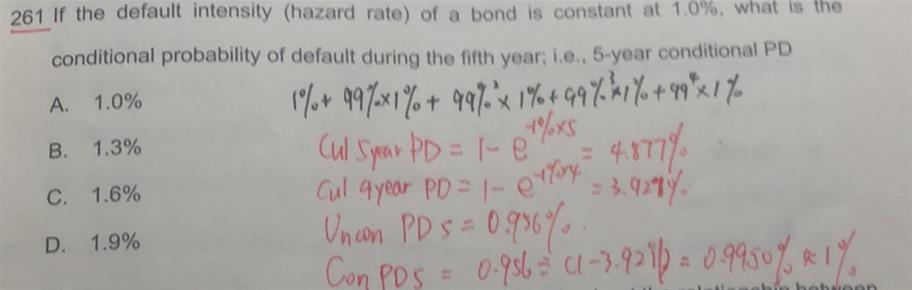 261 If the default intensity (hazard rate) of a bond is constant at 1.0%, what is the
conditional probability of default during the fifth year; i.e., 5-year conditional PD
A. 1.0%
1%+ 99%×1%+ 99%²×1%+99%³×1%+99⁴×1%
B. 1.3%
Cul 5year PD = 1- e^-1%×5 = 4.877%
C. 1.6%
Cul 4year PD = 1- e^-1%×4 = 3.921%.
Uncon PD5 = 0.956%.
D. 1.9%
Con PD5 = 0.956÷(1-3.921%) = 0.9950% ≈ 1%